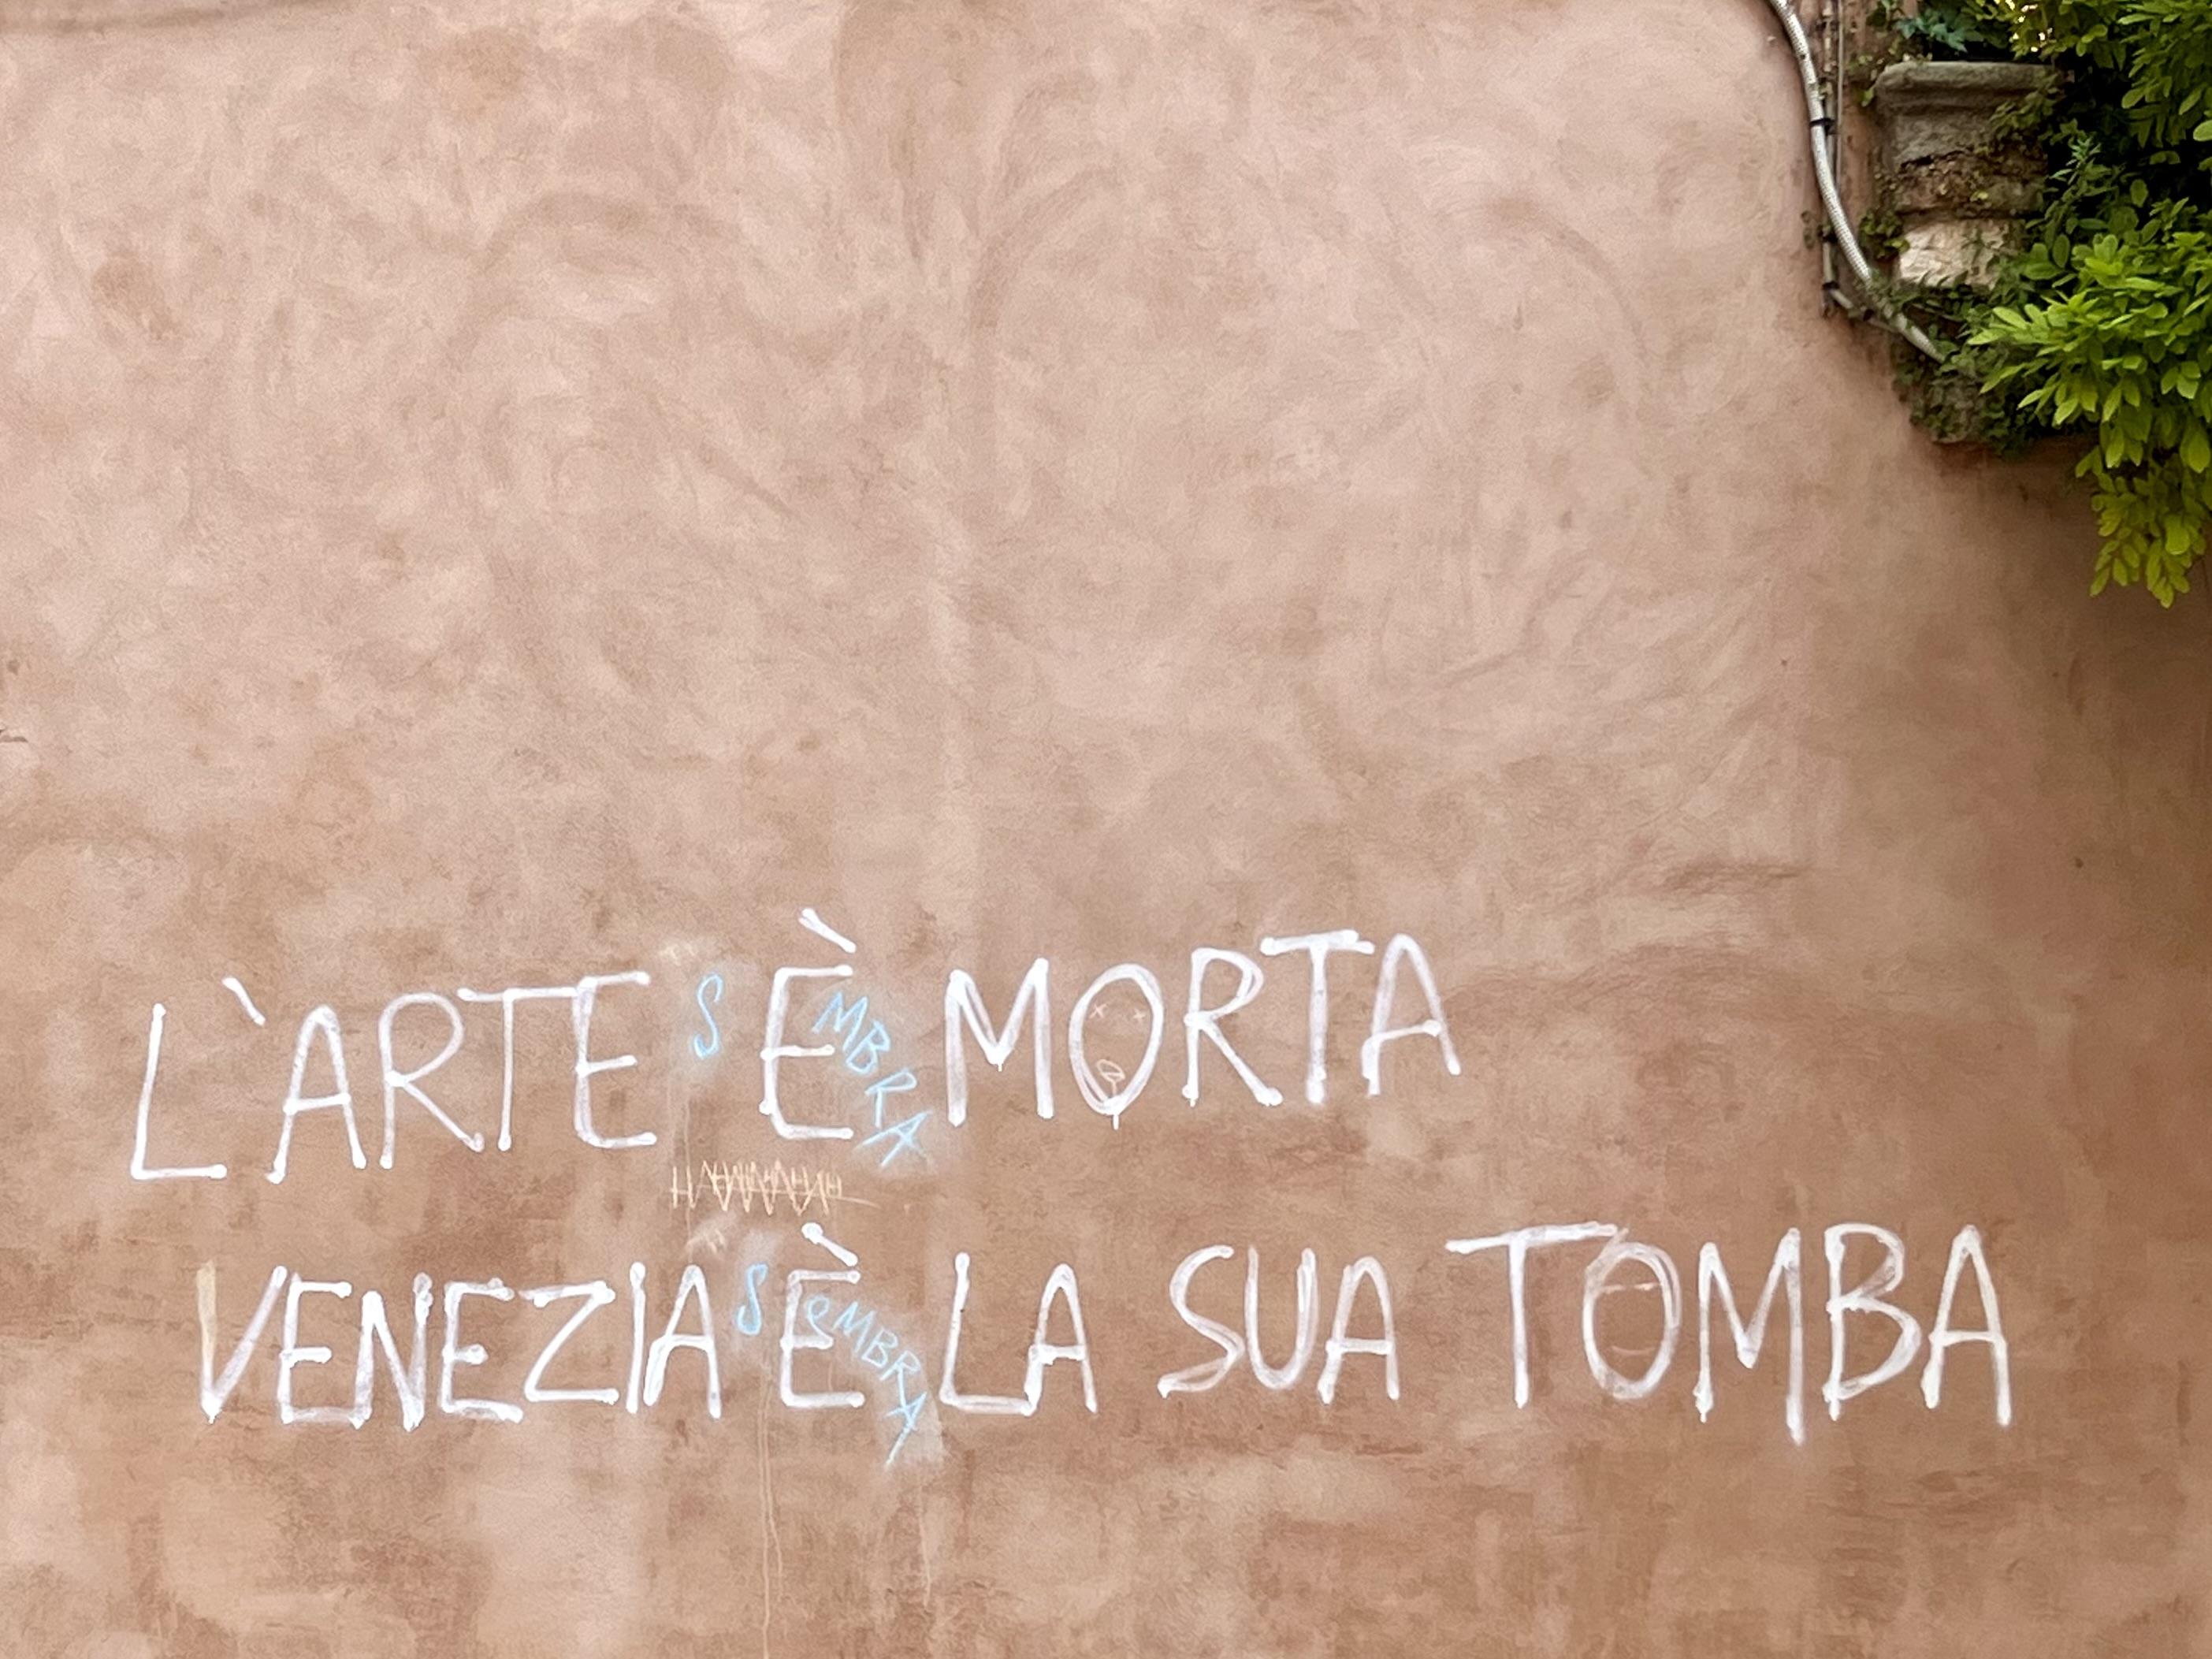 L`ARTE S È MBRA MORTA
VENEZIA S È eMBRA LA SUA TOMBA